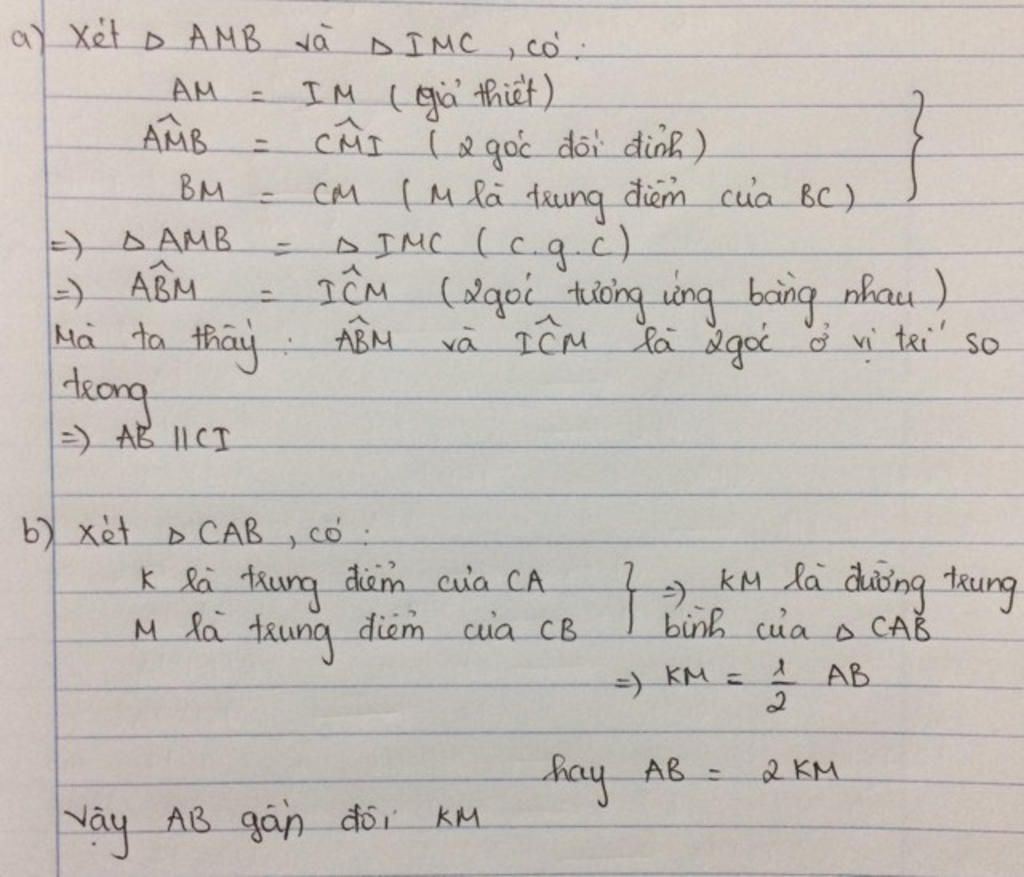 a) Xét △ AMB và △ IMC, có:
AM = IM (giả thiết)
AM̂B = CM̂I (2 góc đối đỉnh)
BM = CM (M là trung điểm của BC)
=) △ AMB = △ IMC (c.g.c)
=) AB̂M = IĈM (2góc tương ứng bằng nhau)
Mà ta thấy: AB̂M và IĈM là 2góc ở vị trí so
trong
=) AB // CI
b) Xét △ CAB, có:
K là trung điểm của CA } =) KM là đường trung
M là trung điểm của CB bình của △ CAB
=) KM = 1/2 AB
hay AB = 2 KM
Vậy AB gấp đôi KM